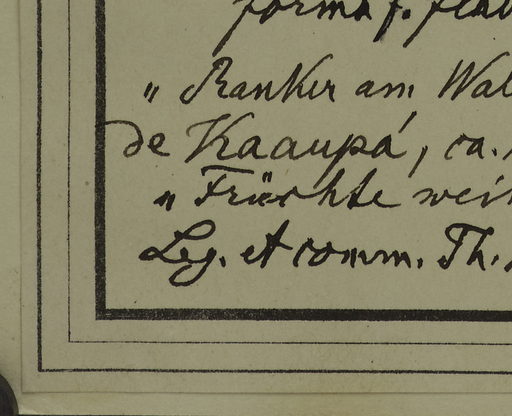 forma f.
„ Ranker am
de Kaaupá, ca.
„ Früchte
Leg. et comm. Th.